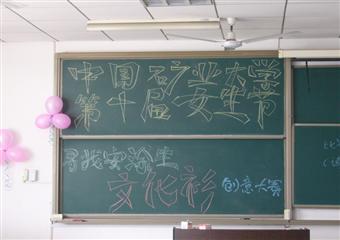 中国矿业大学
第十届女生节
寻找实验生
文化衫 创意大赛